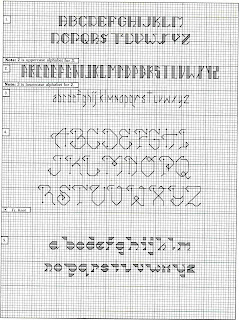 ABCDEFGHIJKLM
NOPQRSTUVWXYZ
Note: 2 is uppercase alphabet for 3.
ABCDEFGHIJKLMNOPQRSTUVWXYZ
Note: 3 is lowercase alphabet for 2.
abcdefghijklmnopqrstuvwxyz
4
ABCDEFGHI
JKLMNOPQ
RSTUVWXYZ
5
abcdefghijklm
nopqrstuvwxyz